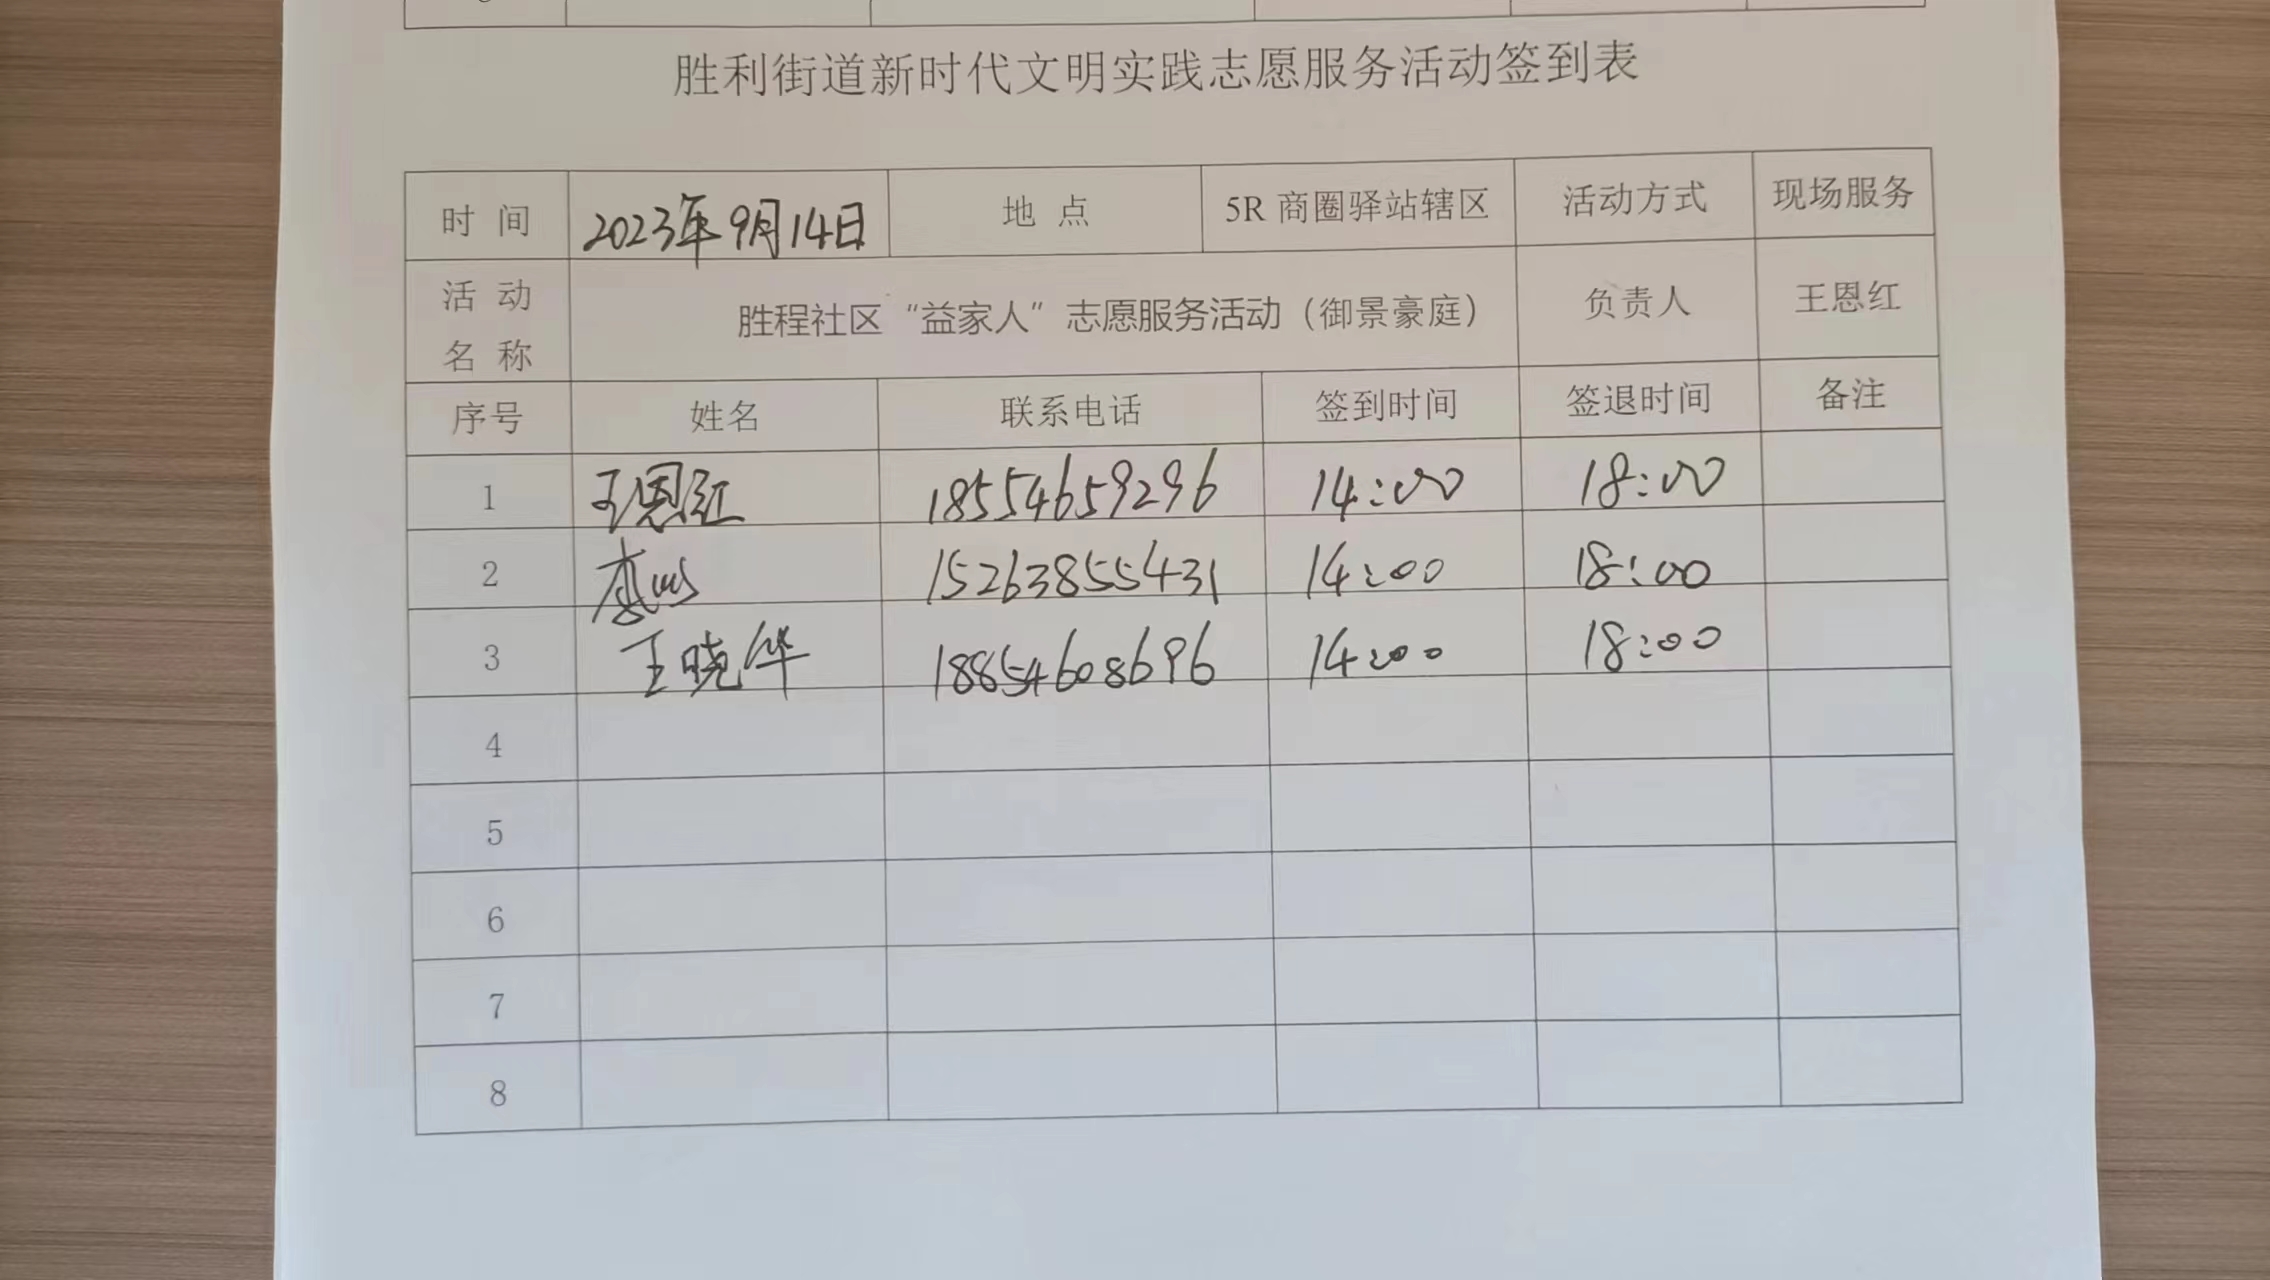 胜利街道新时代文明实践志愿服务活动签到表
时 间 2023年9月14日 地 点 5R 商圈驿站辖区 活动方式 现场服务
活 动 名 称 胜程社区“益家人”志愿服务活动（御景豪庭） 负责人 王恩红
序号 姓名 联系电话 签到时间 签退时间 备注
1 王恩红 18554659296 14:00 18:00
2 15263855431 14:00 18:00
3 王晓华 18854608696 14:00 18:00
4
5
6
7
8